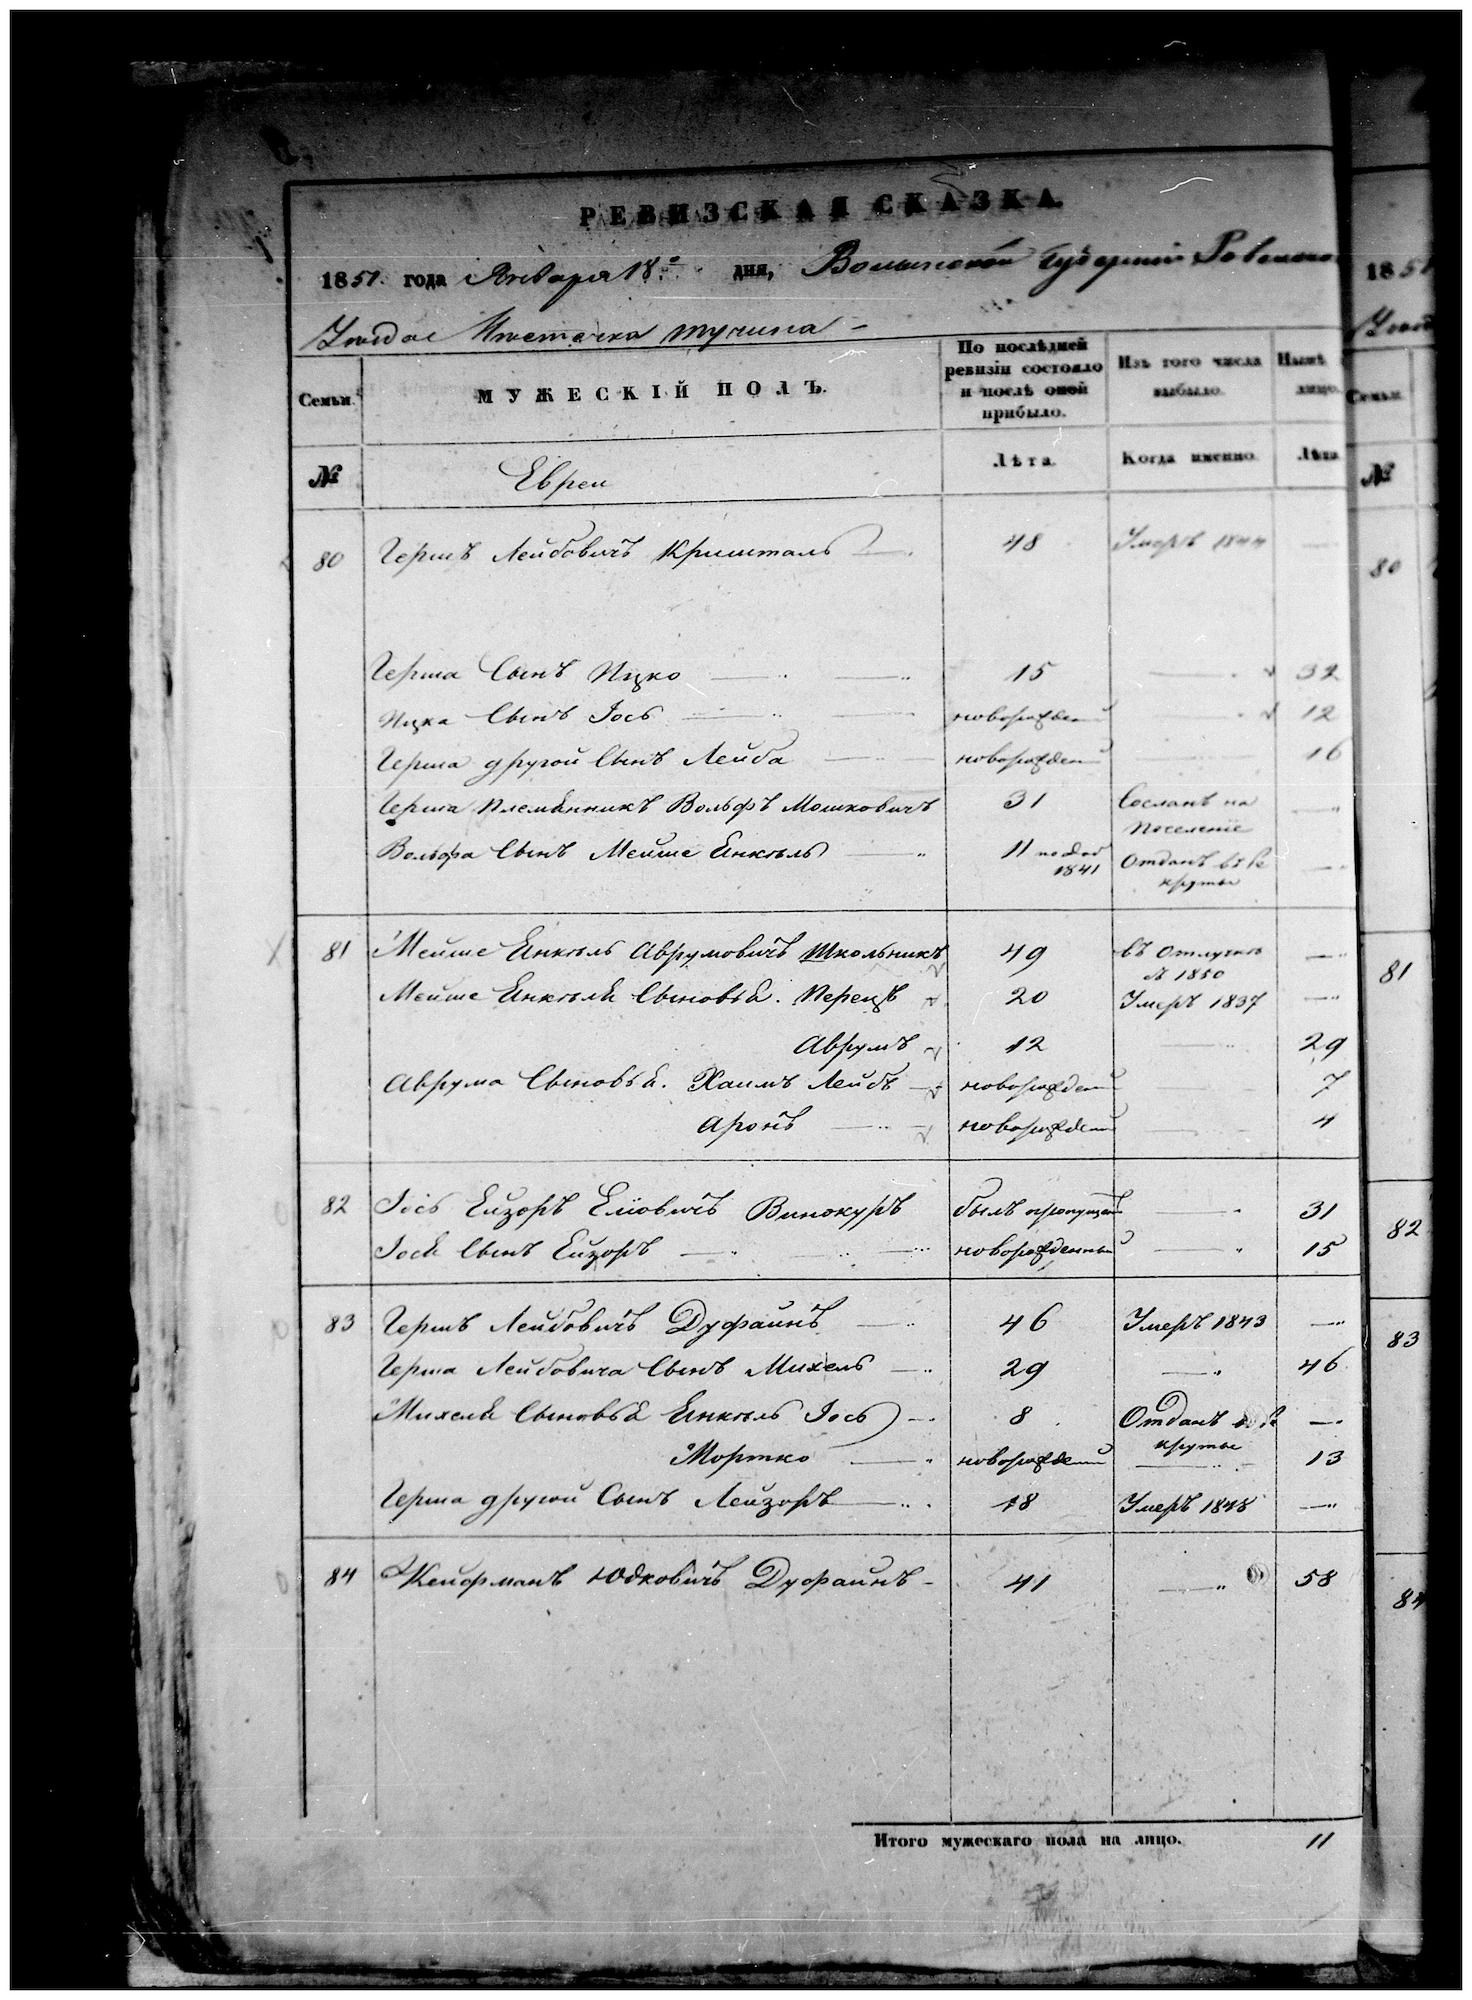 РЕВИЗСКАЯ СКАЗКА.
1851 года Января 18 дня, Волынской Губерніи Ровенско
Уезда Местечка Тучина
Семьи. МУЖЕСКІЙ ПОЛЪ. По послѣдней ревизіи состояло и послѣ оной прибыло. Изъ того числа выбыло. Нынѣ лицо.
№ Евреи Лѣта. Когда именно. Лѣта
80 Гершъ Лейбовичъ Кришталь 48 Умеръ 1844
Герша Сынъ Ицко 15 32
Ицка Сынъ Іось новорожден 12
Герша другой Сынъ Лейба новорожден 16
Герша Племянникъ Вольфъ Мошковичъ 31 Сосланъ на
Поселеніе
Вольфа Сынъ Мейше Янкель 11 по доб Отданъ въ Ре
1841 круты
81 Мейше Янкель Аврумовичъ Школьникъ 49 въ отлучке
съ 1850
Мейше Янкеля Сыновья. Перецъ 20 Умеръ 1837
Аврумъ 12 29
Аврума Сыновья. Хаимъ Лейбъ новорожден 7
Аронъ новорожден 4
82 Іось Ейзоръ Еліовичъ Винокуръ былъ пропущен 31
Іося Сынъ Ейзоръ новорожденный 15
83 Гершъ Лейбовичъ Дуфайнъ 46 Умеръ 1843
Герша Лейбовича Сынъ Михель 29 46
Михеля Сыновья Янкель Іось 8 Отданъ в Ре
круты
Мортко новорожден 13
Герша другой Сынъ Лейзоръ 18 Умеръ 1848
84 Кейфманъ Юдковичъ Дуфайнъ 41 58
Итого мужескаго пола на лицо. 11
1851
Уезд
Семьи.
№
80
81
82
83
84